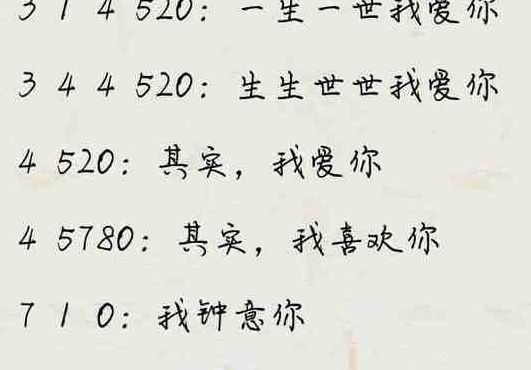 3 1 4 520：一生一世我爱你
3 4 4 520：生生世世我爱你
4 520：其实，我爱你
4 5780：其实，我喜欢你
7 1 0：我钟意你